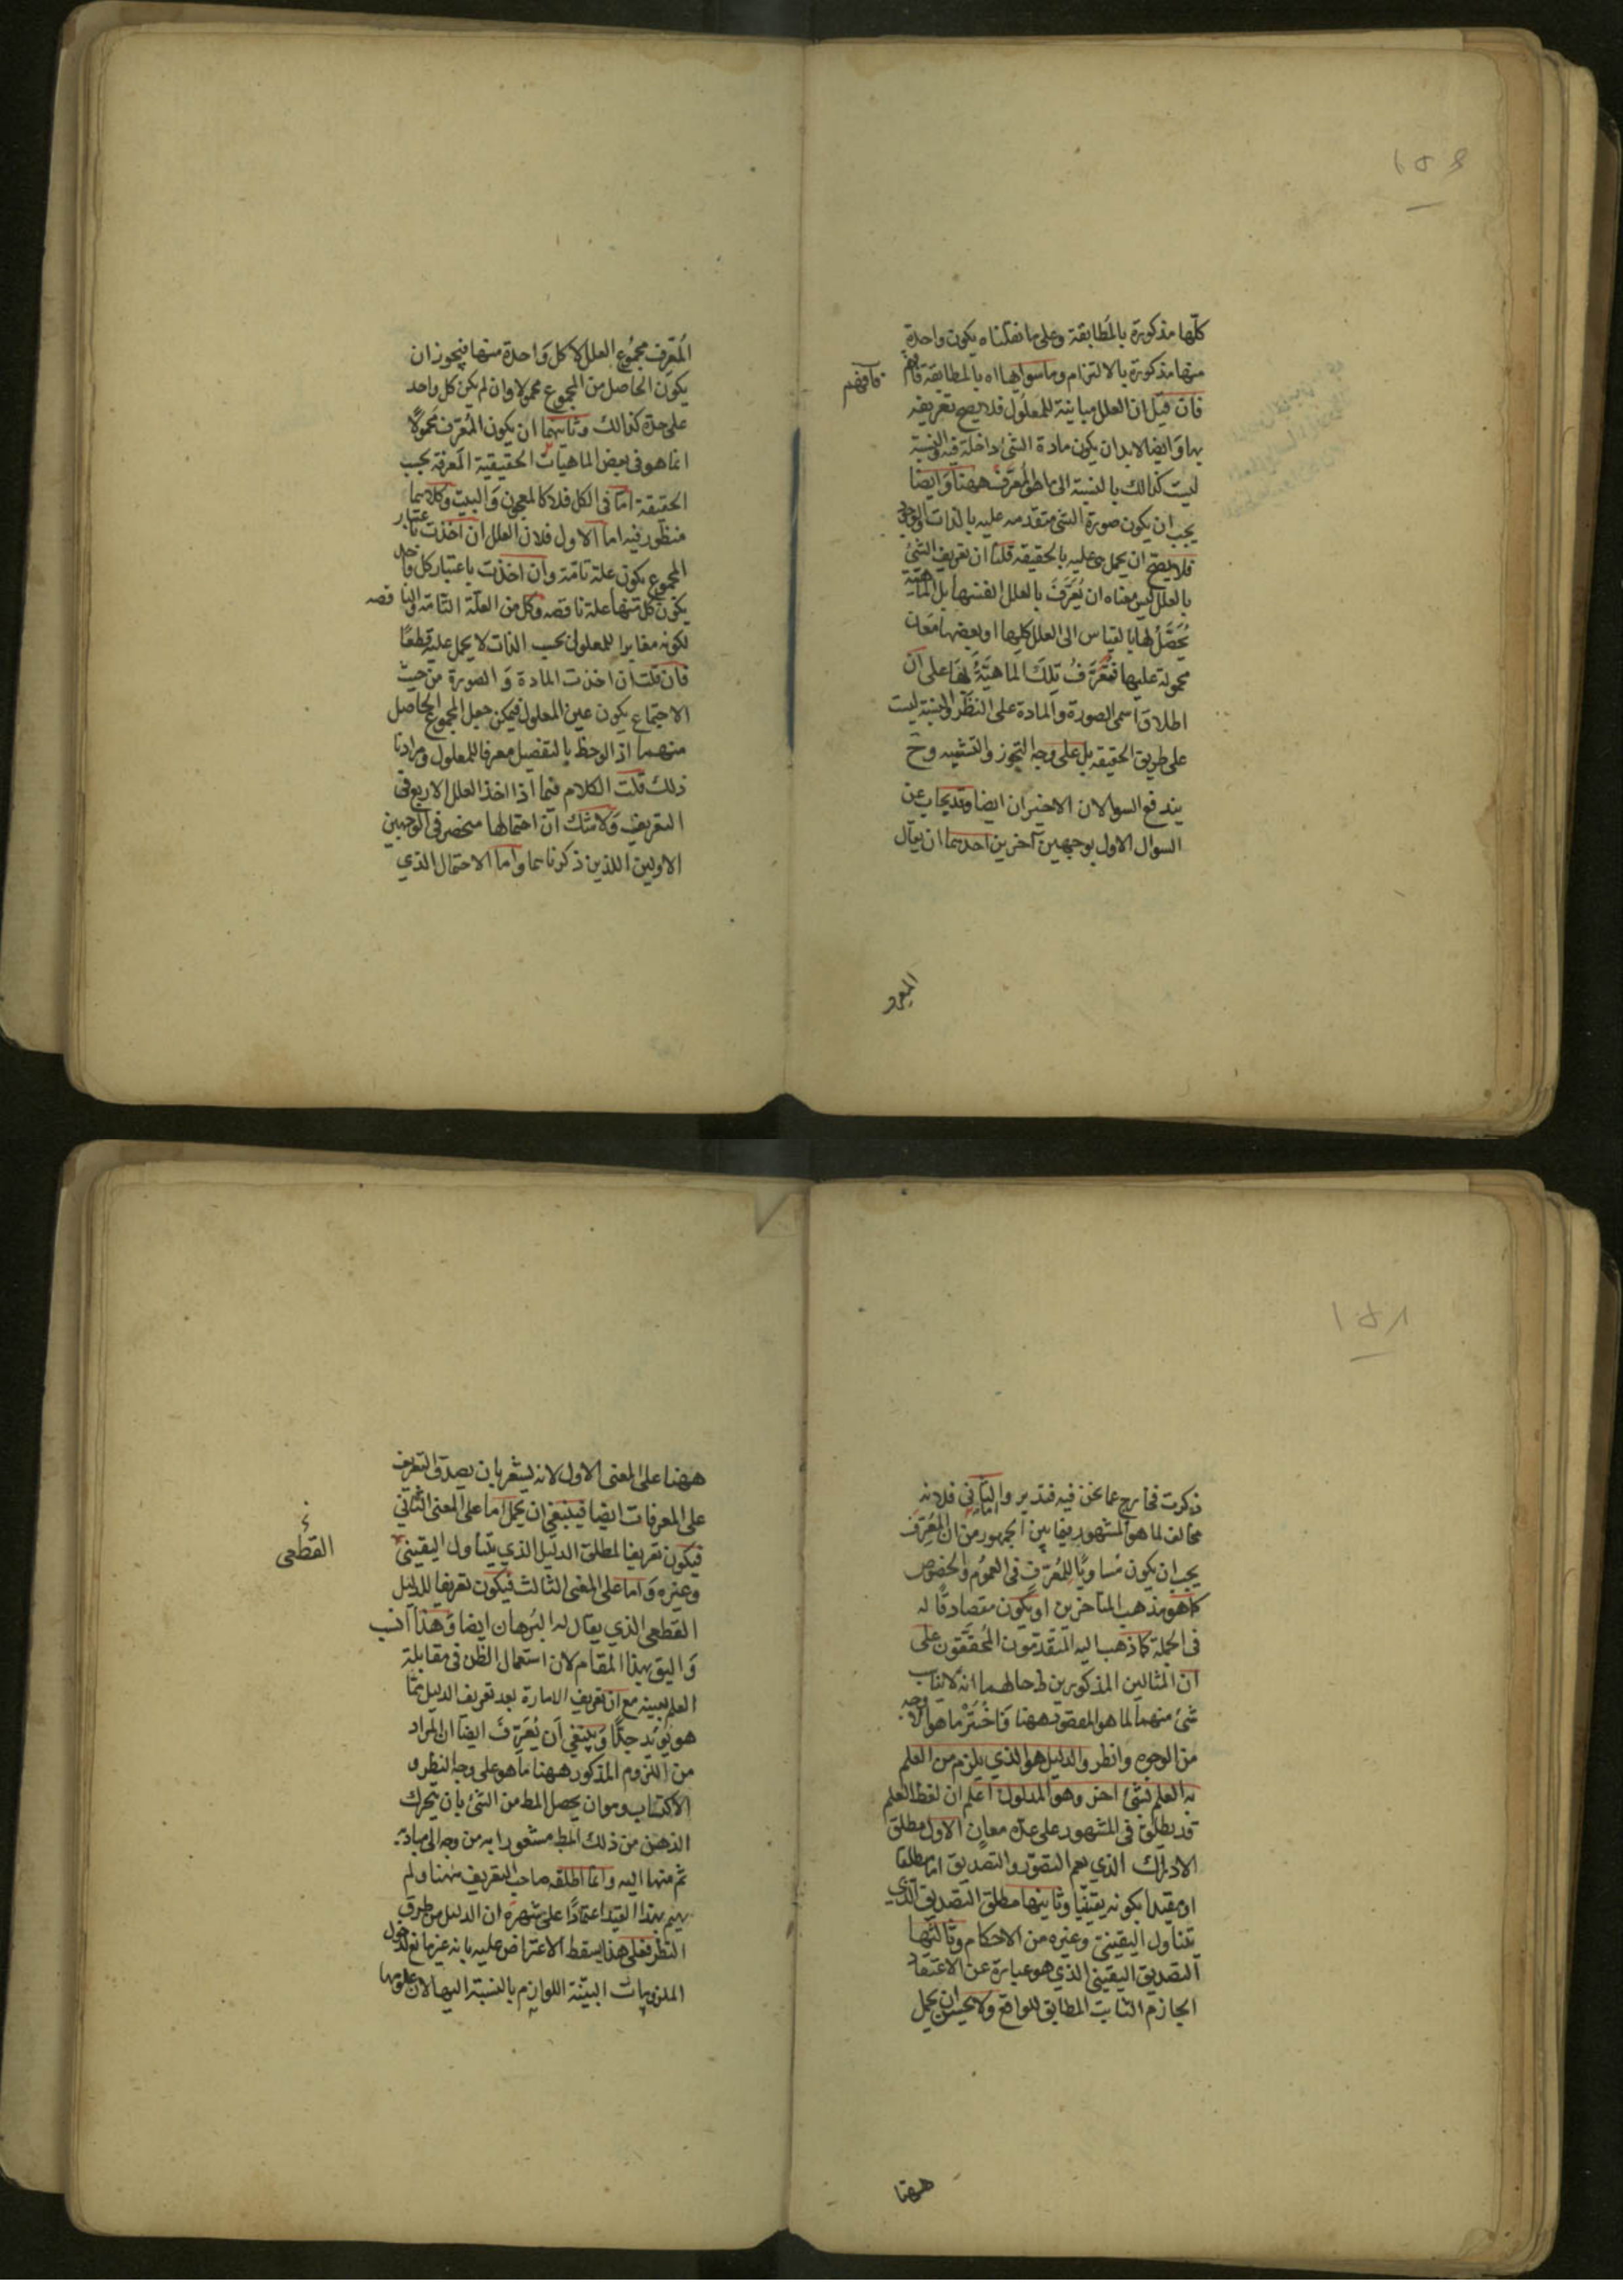 كلّها مذكورة بالمطابقة وعلى ما نقلناه يكون واحدة
منها مذكورة بالالتزام وما سواها اه بالمطابقة فافهم
فافهم
فان قيل ان العلل مباينة للمعلول فلا يصح تعريفه
بها وايضا لابد ان يكون مادة الشئ داخلة فيه والنسبة
ليست كذالك بالنسبة الى المعرّف ههنا وايضا
يجب ان يكون صورة الشئ متقدمه عليه بالذات
فلا يصح ان يحمل عليه بالحقيقه قلنا ان تعريف الشئ
بالعلل ليس معناه ان يُعَرَّفَ بالعلل انفسها بل الماهيّة
يُحَصَّلُ لها بالقياس الى العلل كلها او بعضها معان
محمولة عليها فتُعَرَّفُ تِلكَ الماهيَّةُ بها على ان
اطلاق اسمى الصورة والمادة على النظر والنسبة ليست
على طريق الحقيقه بل على وجه التجوز والتشبيه وح
يندفع السوالان الاخيران ايضا وقد يجاب عن
السوال الاول بوجهين آخرين احدهما ان يقال
المعرف
المُعرِّف مجمُوع العلل لا كل وَاحدة منها فيجوز ان
يكون الحاصل من المجموع محمولا وان لم يكن كل واحد
على حدة كذالك وثانيهما ان يكون المُعَرِّف مَحمُولًا
انما هو فى بعض الماهيات الحقيقية المَعرفة بحسب
الحقيقة امّا فى الكل فلا كالمعجون وَالبيت وكلاهما
منظور فيه اما الاول فلان العلل ان اخذت باعتبار
المجموع يكون علة تامّة وان اخذت باعتبار كل واحد
يكون كل منها علة ناقصه وكل من العلّة التّامّة والناقصه
لكونه مغايرا للمعلول بحسب الذات لا يحمل عليه قطعًا
فان قلت ان اخذت المادة وَ الصورة من حيث
الاجتماع يكون عين المعلول فيمكن جعل المجموع الحاصل
منهما اذا لوحظ بالتفصيل معرفا للمعلول ومرادنا
ذلك قلت الكلام فيما اذا اخذ العلل الاربع فى
التعريف وَلا شك ان احتمالها منحصر فى الوجهين
الاولين اللذين ذكرناهما واما الاحتمال الذي
١٥٨
ذكرت فخارج عما نحن فيه فتدبر واما الثانى فلانه
مخالف لما هو المشهور فيما بين الجمهور من ان المُعَرِّف
يجب ان يكون مُساويًا لِلمُعَرَّفِ فى العموم والخصوص
كما هو مذهب المتأخرين او يكون متصادقًا له
فى الجملة كما ذهب اليه المتقدمون المُحَقِّقون على
ان المثالين المذكورين لاحالهما انه لا يناسب
شئ منهما لما هو المقصود ههنا فَاختَر ما هو الاوجه
من الوجوه وانظر والدليل هو الذي يلزم من العلم
به العلم بشئ اخر وهو المدلول اعلم ان لفظ العلم
قد يطلق فى المشهور على عدّه معانٍ الاول مطلق
الادراك الذي يعم التصوّر والتصديق اما مطلقا
او مقيدا بكونه يقينيًا وثانيها مطلق التصديق الذي
يتناول اليقينى وغيره من الاحكام وثالثها
التصديق اليقينى الذي هو عبارة عن الاعتقاد
الجازم الثابت المطابق للواقع ولا يحسن ان يحمل
ههنا
ههنا على المعنى الاول لانه يشعر بان يصدق التعريف
على المعرفات ايضا فينبغى ان يحمل اما على المعنى الثانى
فيكون تعريفا لمطلق الدليل الذي يتناول اليقينى
وغيره وَاما على المعنى الثالث فيكون تعريفا للدليل
القطعى
القطعى الذي يقال له البُرهان ايضا وَهذا انسب
وَاليق بهذا المقام لان استعمال الظن فى مقابلة
العلم بعينه مع ان تعريف الامارة بعد تعريف الدليل ممّا
هو يؤيد جدًّا وينبغي اَن يُعَرَّفَ ايضا ان المراد
من اللزوم المذكور ههنا ما هو على وجه النظر و
الاكتساب وهو ان يحصل المط من الشئ بان يتحرك
الذهن من ذلك المط مشعورا به من وجه الى مباديه
ثم منها اليه وانما اطلقه صاحب التعريف ههنا ولم
يقيد بهذا القيد اعتمادًا على شهرة ان الدليل من طرق
النظر فعلى هذا يسقط الاعتراض عليه بانه غير مانع لدخول
الملزومات البيّنة اللوازم بالنسبة اليها لان